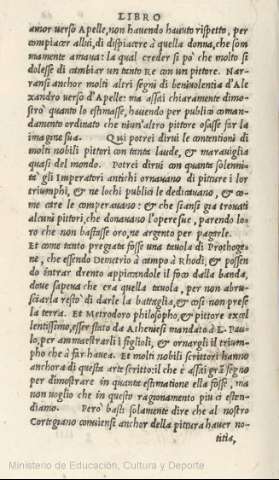 LIBRO
amor verso Apelle, non havendo havuto rispetto, per
compiacer alui, di dispiacere à quella donna, che som
mamente amava: la qual creder si po che molto si
dolesse di cambiar un tanto Re con un pittore. Nar
ransi anchor molti altri segni di benivolentia d'Ale
xandro verso d'Apelle: ma assai chiaramente dimo
strò quanto lo estimasse, havendo per publico coman
damento ordinato che niun'altro pittore osasse far la
imagine sua. Quì potrei dirvi le contentioni di
molti nobili pittori con tanta laude, & maraviglia
quasi del mondo. Potrei dirvi con quanta solenni
tà gli Imperatori antichi ornavano di pitture i lor
triumphi, & ne lochi publici le dedicavano, & co
me care le comperavano: & che siansi gia trovati
alcuni pittori, che donavano l'opere sue, parendo lo
ro che non bastasse oro, ne argento per pagarle.
Et come tanto pregiata fosse una tavola di Prothoge
ne, che essendo Demetrio à campo à Rhodi, & possen
do intrar drento appicandole il foco dalla banda,
dove sapeva che era quella tavola, per non abru-
sciarla restò di darle la battaglia, & così non prese
la terra. Et Metrodoro philosopho, & pittore excel
lentissimo, esser stato da Atheniesi mandato à L. Pau
lo, per ammaestrarli i figlioli, & ornargli il trium
pho che à far havea. Et molti nobili scrittori hanno
anchora di questa arte scritto: il che è assai gran segno
per dimostrare in quanta estimatione ella fosse, ma
non voglio che in questo ragionamento piu ci esten-
diamo. Però basti solamente dire che al nostro
Cortegiano conviensi anchor della pittura haver no-
titia,
Ministerio de Educación, Cultura y Deporte